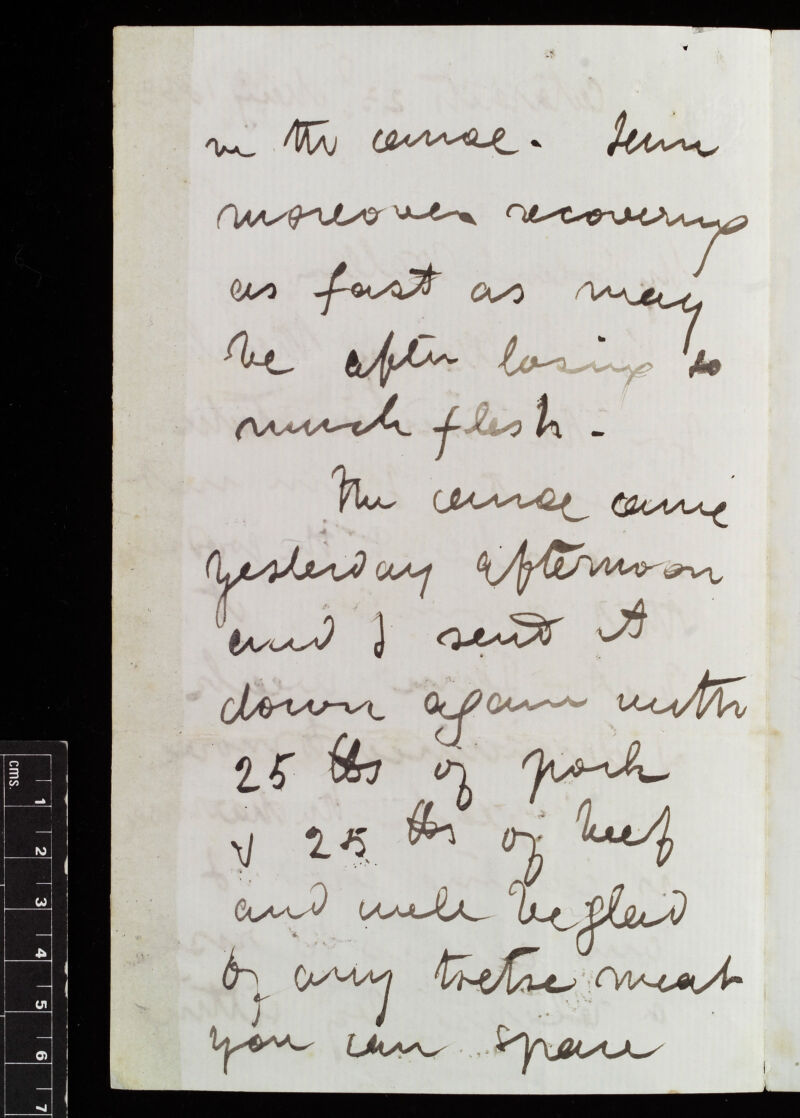 in the canoe. I am
moreover recovering
as fast as may
be after losing so
much flesh -
The canoe came
yesterday afternoon
and I send it
down again with
25 lbs of pork
& 25 lbs of beef
and will be glad
of any tsetse meat
you can spare
cms
1
2
3
4
5
6
7